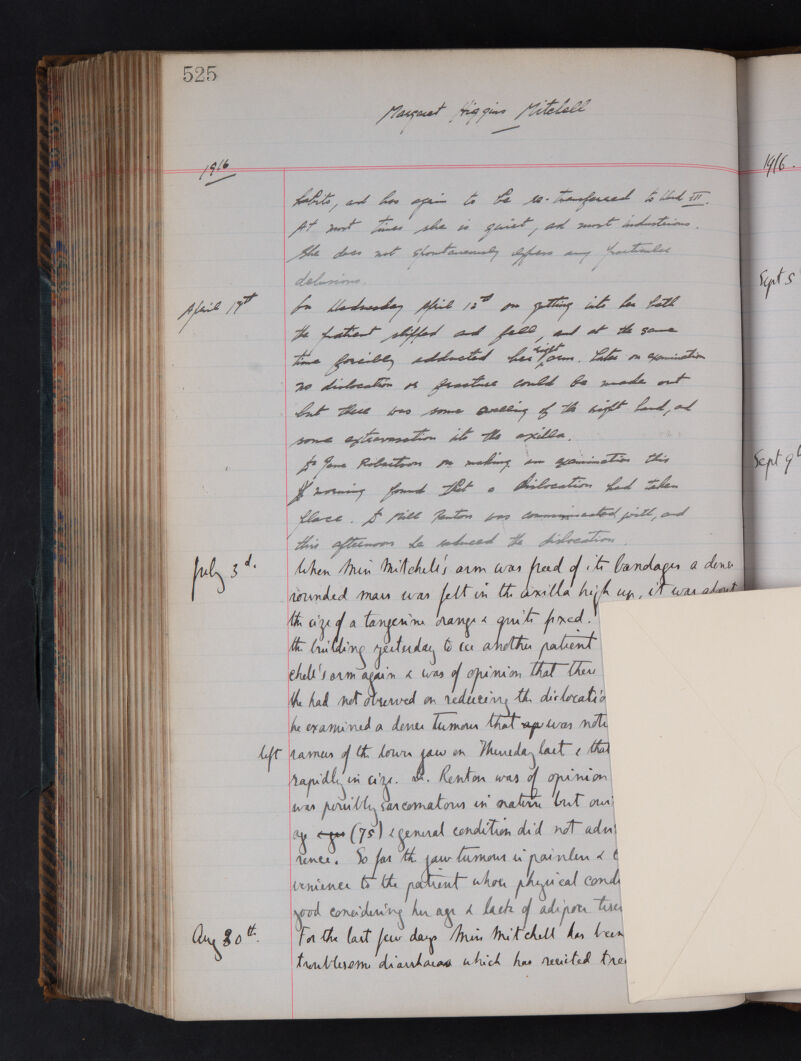 525
Margaret Higgins Mitchell
1916
1916.
habits, and has again to be re-transferred to Ward III.
At most times she is quiet, and most industrious.
She does not spontaneously express any particular
delusions.
April 17th
On Wednesday April 12th on getting into her bath
the patient slipped and fell, and at the same
time forcibly abducted her right arm. Later on examination
no dislocation or fracture could be made out
but there was some swelling of the right hand, and
some extravasation into the axilla.
Dr Jane Robertson on making an examination this
morning found that a dislocation had taken
place. Dr Mill Renton was communicated with, and
this afternoon he reduced the dislocation.
July 3d.
When Miss Mitchell's arm was freed of its bandages a dense
rounded mass was felt in the axilla high up, it was about
the size of a tangerine orange & quite fixed.
the building yesterday to see another patient
chell's arm again & was of opinion that there
he had not observed on reducing the dislocatio
he examined a dense tumour that was note
left
ramus of the lower jaw on Thursday last & that
rapidly in size. Dr. Renton was of opinion
was possibly sarcomatous in nature but owi
age (75) & general condition did not advi
rence. So far the jaw tumour is painless &
venience to the patient whose physical condi
good considering her age & lack of adipose tissu
Aug 30th.
For the last few days Miss Mitchell has been
troublesome diarrhoea which has resisted trea
Sept 5
Sept 9t